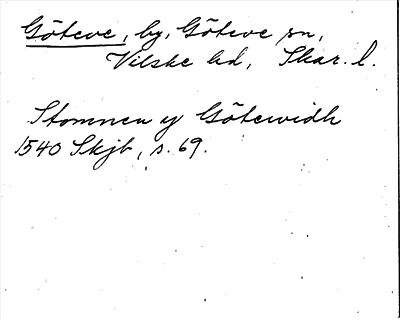 Göteve, by, Göteve sn,
Vilske hd, Skar. l.
Stommen y Götewidh
1540 Skjb, s. 69.